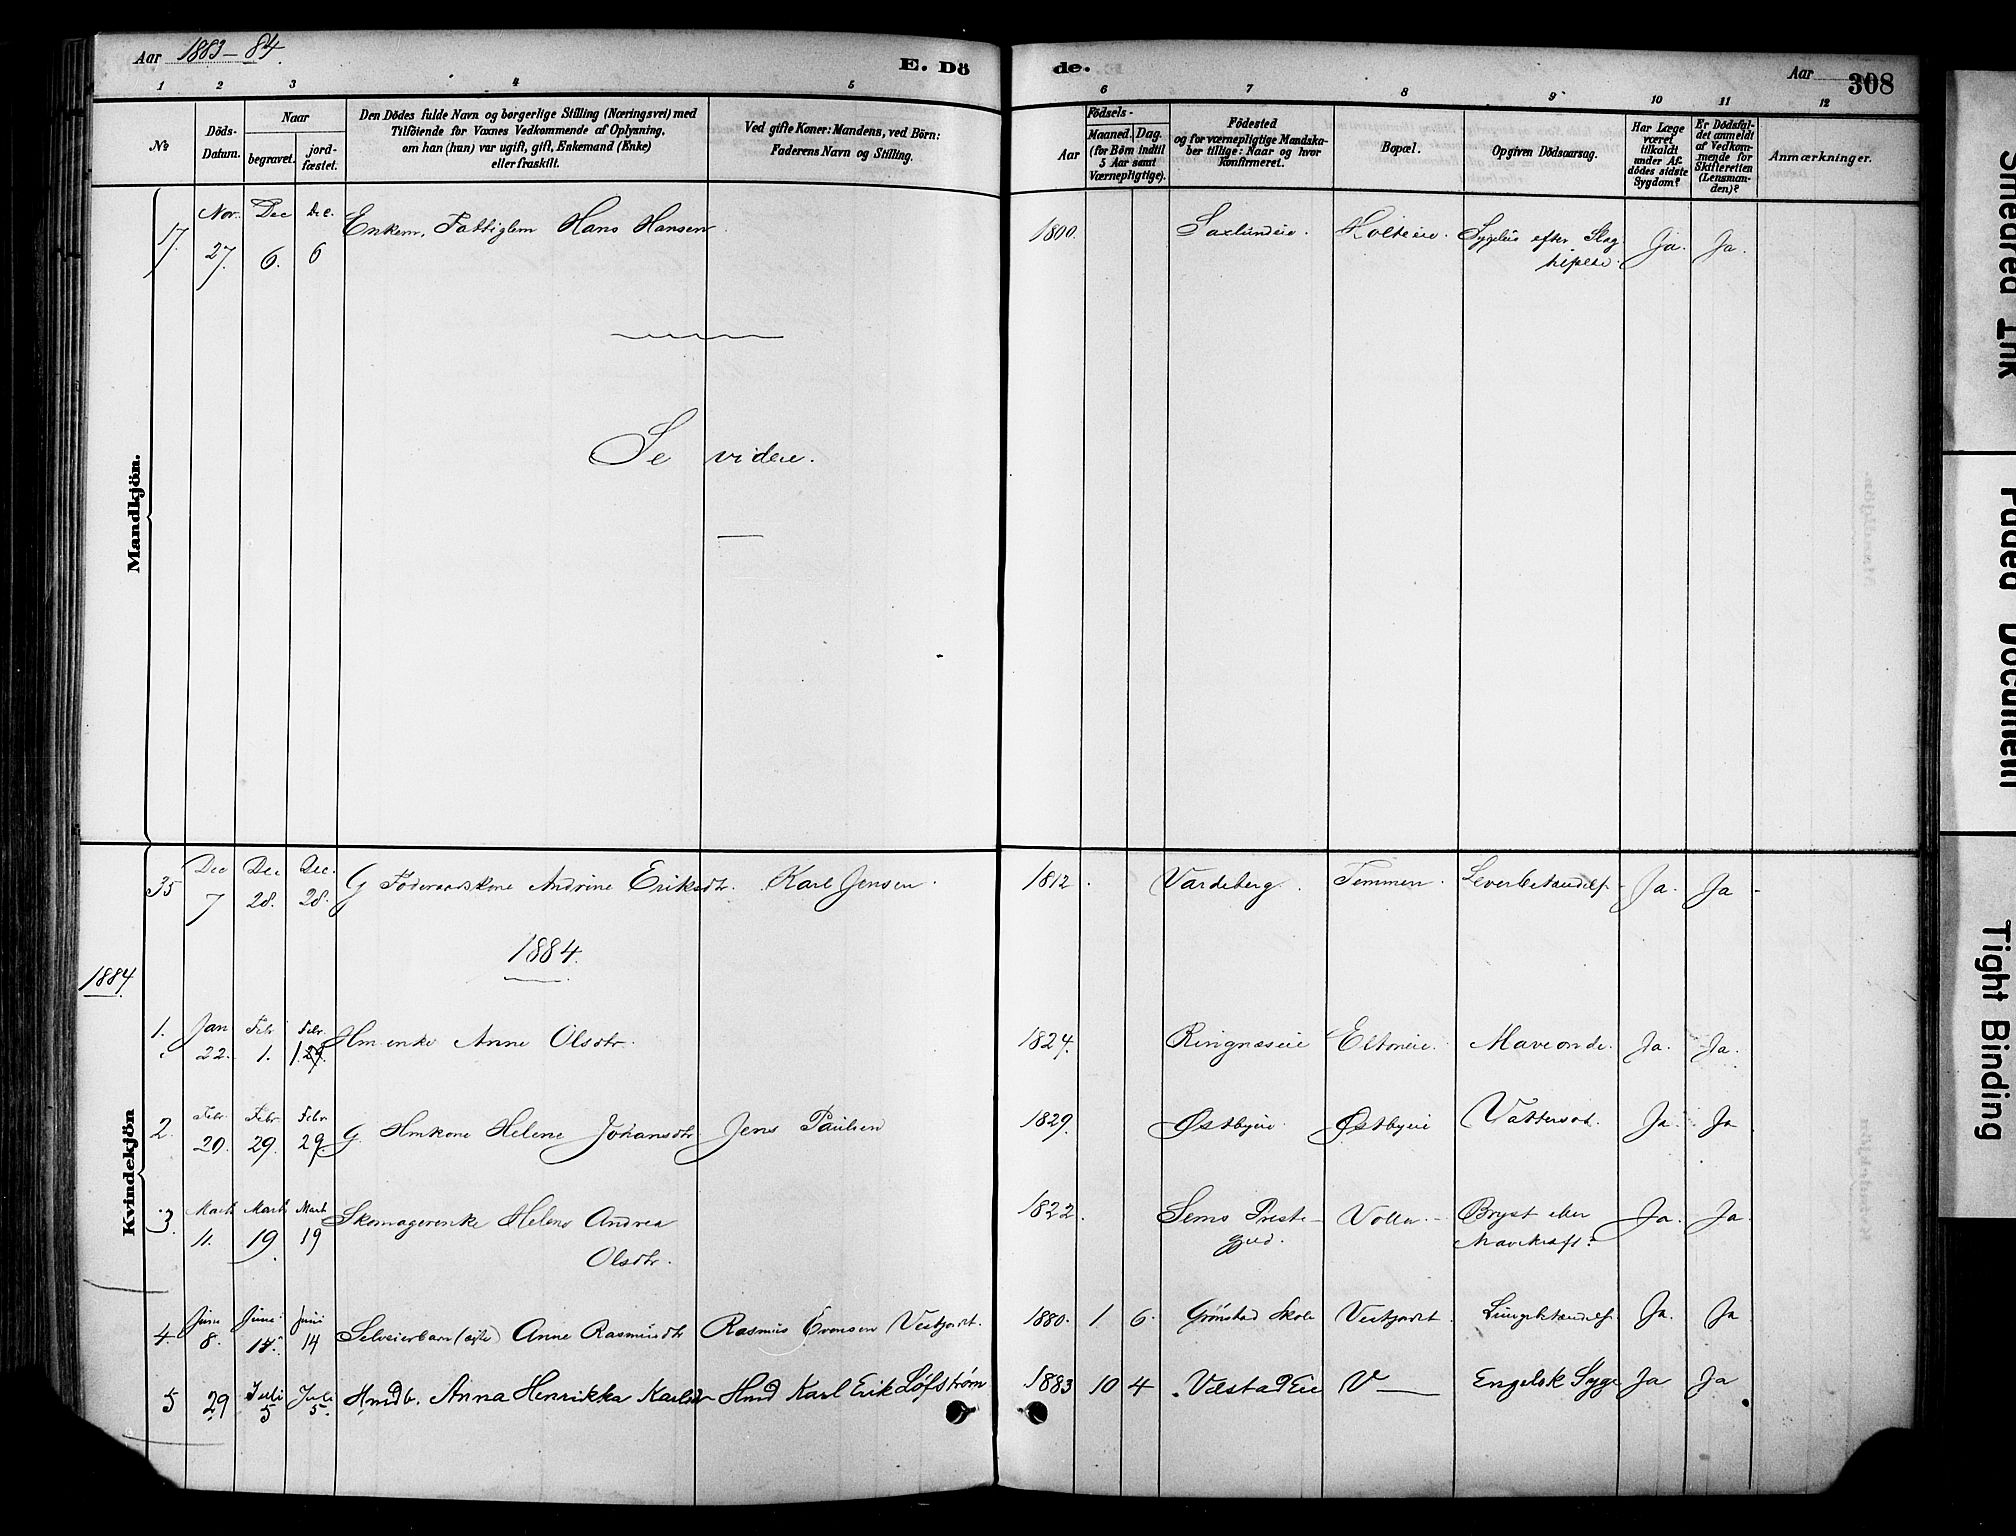 Aar 1883-84.
E. Dö
de.
Aar
308
1 2 3 4 5 6 7 8 9 10 11 12
№
Döds-Datum.
Naar
begravet.
jord-fæstet.
Den Dödes fulde Navn og borgerlige Stilling (Næringsvei) med
Tilföiende for Voxnes Vedkommende af Oplysning,
om han (hun) var ugift, gift, Enkemand (Enke)
eller fraskilt.
Ved gifte Koner: Mandens, ved Börn:
Faderens Navn og Stilling.
Födsels-
Aar
Maaned. Dag.
(for Börn indtil
5 Aar samt
Værnepligtige).
Födested
og for værnepligtige Mandska-
ber tillige: Naar og hvor
Konfirmeret.
Bopæl.
Opgiven Dödsaarsag.
Har Læge
været
tilkaldt
under Af-
dödes sidste
Sygdom?
Er Dödsfal-
det anmeldt
af Vedkom-
mende for
Skifteretten
(Lensman-
den)?
Anmærkninger.
Mandkjön.
17 Nov. 27. Dec 6. Dec. 6 Enkem. Fattiglem Hans Hansen 1800. Saxlundeie. Holteie. Sygeleie efter Slag Ja. Ja.
Se videre.
Kvindekjön
35 Dec 7 Dec 28. Dec. 28. G Föderaadskone Andrine Eriksdtr. Karl Jensen. 1812. Vardeberg. Temmen. Leverbetændelse Ja. Ja
1884.
1884
1. Jan 22. Febr 1. Febr. 1. Hm. enke Anne Olsdtr. 1824. Ringnæseie Eltoneie. Maveonde. Ja. Ja.
2. Febr. 20. Febr 29. Febr 29. G Hmkone Helene Johansdtr Jens Paulsen 1829. Østbyeie. Østbyeie Vattersot. Ja Ja
3. Marts 11. Marts 19. Marts 19 Skomagerenke Helene Andrea 1822. Sems Preste- Volla. Bryst eller Ja. Ja.
Olsdtr. gjeld. Mavekræft.
4. Juni 8. Juni 14. Juni 14 Selveierbarn (ægte) Anne Rasmusdtr Rasmus Evensen Vestjordet. 1880. 1 6. Grönstad Skole Vestjordet. Lungebetændelse Ja. Ja
5 29 Juli 5 Juli 5. Hmdb. Anna Henrikka Karlsdtr Hmd Karl Erik Löfström 1883 10 4 Velstad Eie V— Engelsk Syge Ja Ja
Smeared Ink
Faded Document
Tight Binding